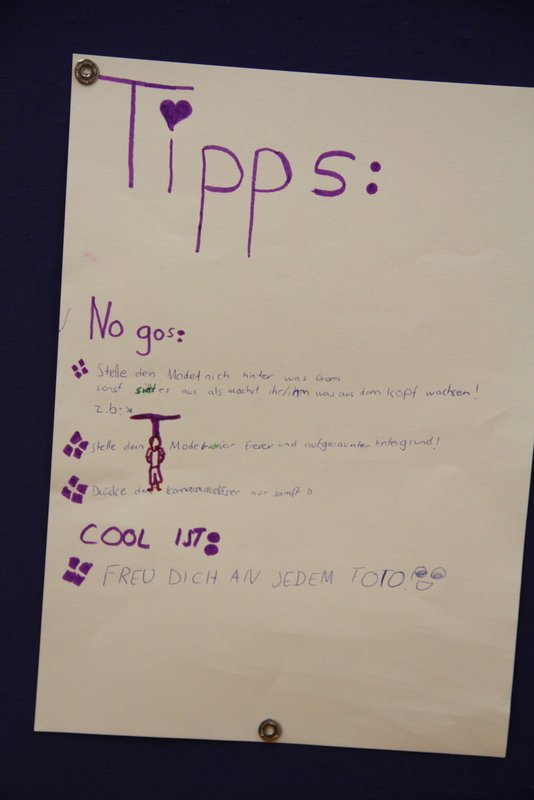 Tipps:
No gos:
Stelle dein Model nich hinter was
sonst sieht es aus als möchst ihr/ihm was aus dem Kopf wachsen!
z.b.
stelle dein Model vor freier und aufgeräumter hintergrund!
Drücke den kameraauslöser nur sanft
COOL IST:
FREU DICH AN JEDEM FOTO.